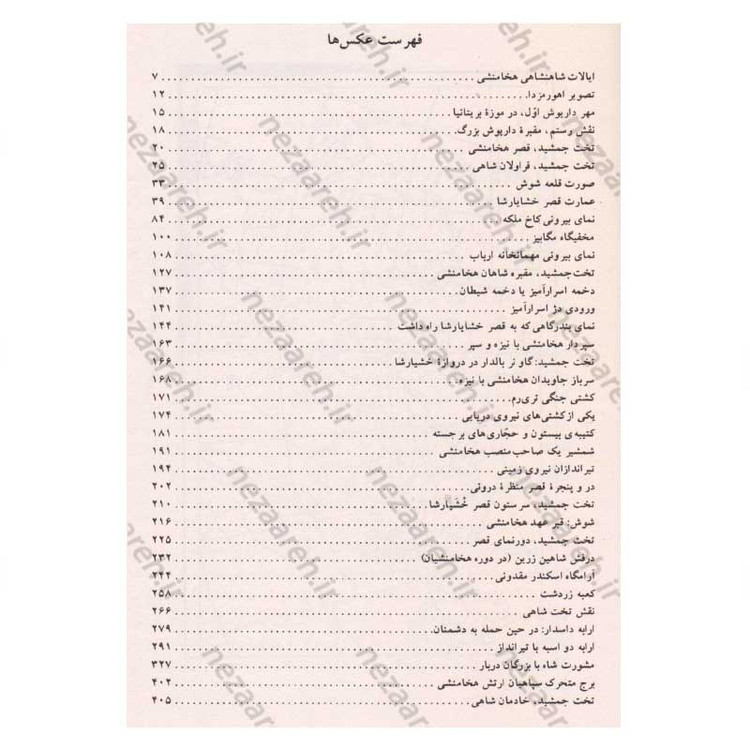 فهرست عکس‌ها
ایالات شاهنشاهی هخامنشی ........ ۷
تصویر اهورمزدا ........ ۱۲
مهر داریوش اوّل، در موزهٔ بریتانیا ........ ۱۵
نقش رستم، مقبرهٔ داریوش بزرگ ........ ۱۸
تخت جمشید، قصر هخامنشی ........ ۲۰
تخت جمشید، قراولان شاهی ........ ۲۵
صورت قلعه شوش ........ ۳۳
عمارت قصر خشایارشا ........ ۳۹
نمای بیرونی کاخ ملکه ........ ۸۴
مخفیگاه مگابیز ........ ۱۰۰
نمای بیرونی مهمانخانه ارباب ........ ۱۰۸
تخت‌جمشید، مقبره شاهان هخامنشی ........ ۱۲۷
دخمه اسرارآمیز یا دخمه شیطان ........ ۱۳۷
ورودی دژ اسرارآمیز ........ ۱۴۱
نمای بندرگاهی که به قصر خشایارشا راه داشت ........ ۱۴۴
سپردار هخامنشی با نیزه و سپر ........ ۱۶۳
تخت جمشید: گاو نر بالدار در دروازهٔ خشیارشا ........ ۱۶۶
سرباز جاویدان هخامنشی با نیزه ........ ۱۶۸
کشتی جنگی تری‌رم ........ ۱۷۱
یکی از کشتی‌های نیروی دریایی ........ ۱۷۴
کتیبه‌ی بیستون و حجّاری‌های برجسته ........ ۱۸۱
شمشیر یک صاحب‌منصب هخامنشی ........ ۱۹۱
تیراندازان نیروی زمینی ........ ۱۹۴
در و پنجرهٔ قصر منظرهٔ درونی ........ ۲۰۲
تخت جمشید، سر ستون قصر خُشَیارشا ........ ۲۱۰
شوش: قبر عهد هخامنشی ........ ۲۱۶
تخت جمشید، دورنمای قصر ........ ۲۲۵
درفش شاهین زرین (در دوره هخامنشیان) ........ ۲۳۲
آرامگاه اسکندر مقدونی ........ ۲۴۴
کعبه زردشت ........ ۲۵۸
نقش تخت شاهی ........ ۲۶۶
ارابه داسدار: در حین حمله به دشمنان ........ ۲۷۹
ارابه دو اسبه با تیرانداز ........ ۲۹۱
مشورت شاه با بزرگان دربار ........ ۳۲۷
برج متحرک سپاهیان ارتش هخامنشی ........ ۴۰۲
تخت جمشید، خادمان شاهی ........ ۴۰۵
nezaareh.ir